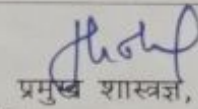 प्रमुख शास्त्रज्ञ,